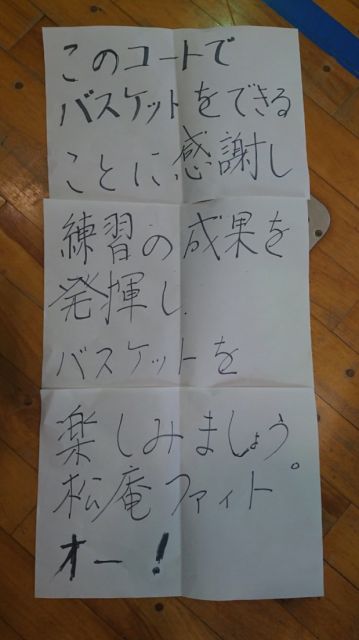 このコートで
バスケットをできる
ことに感謝し
練習の成果を
発揮し
バスケットを
楽しみましょう。
松庵ファイト
オー!